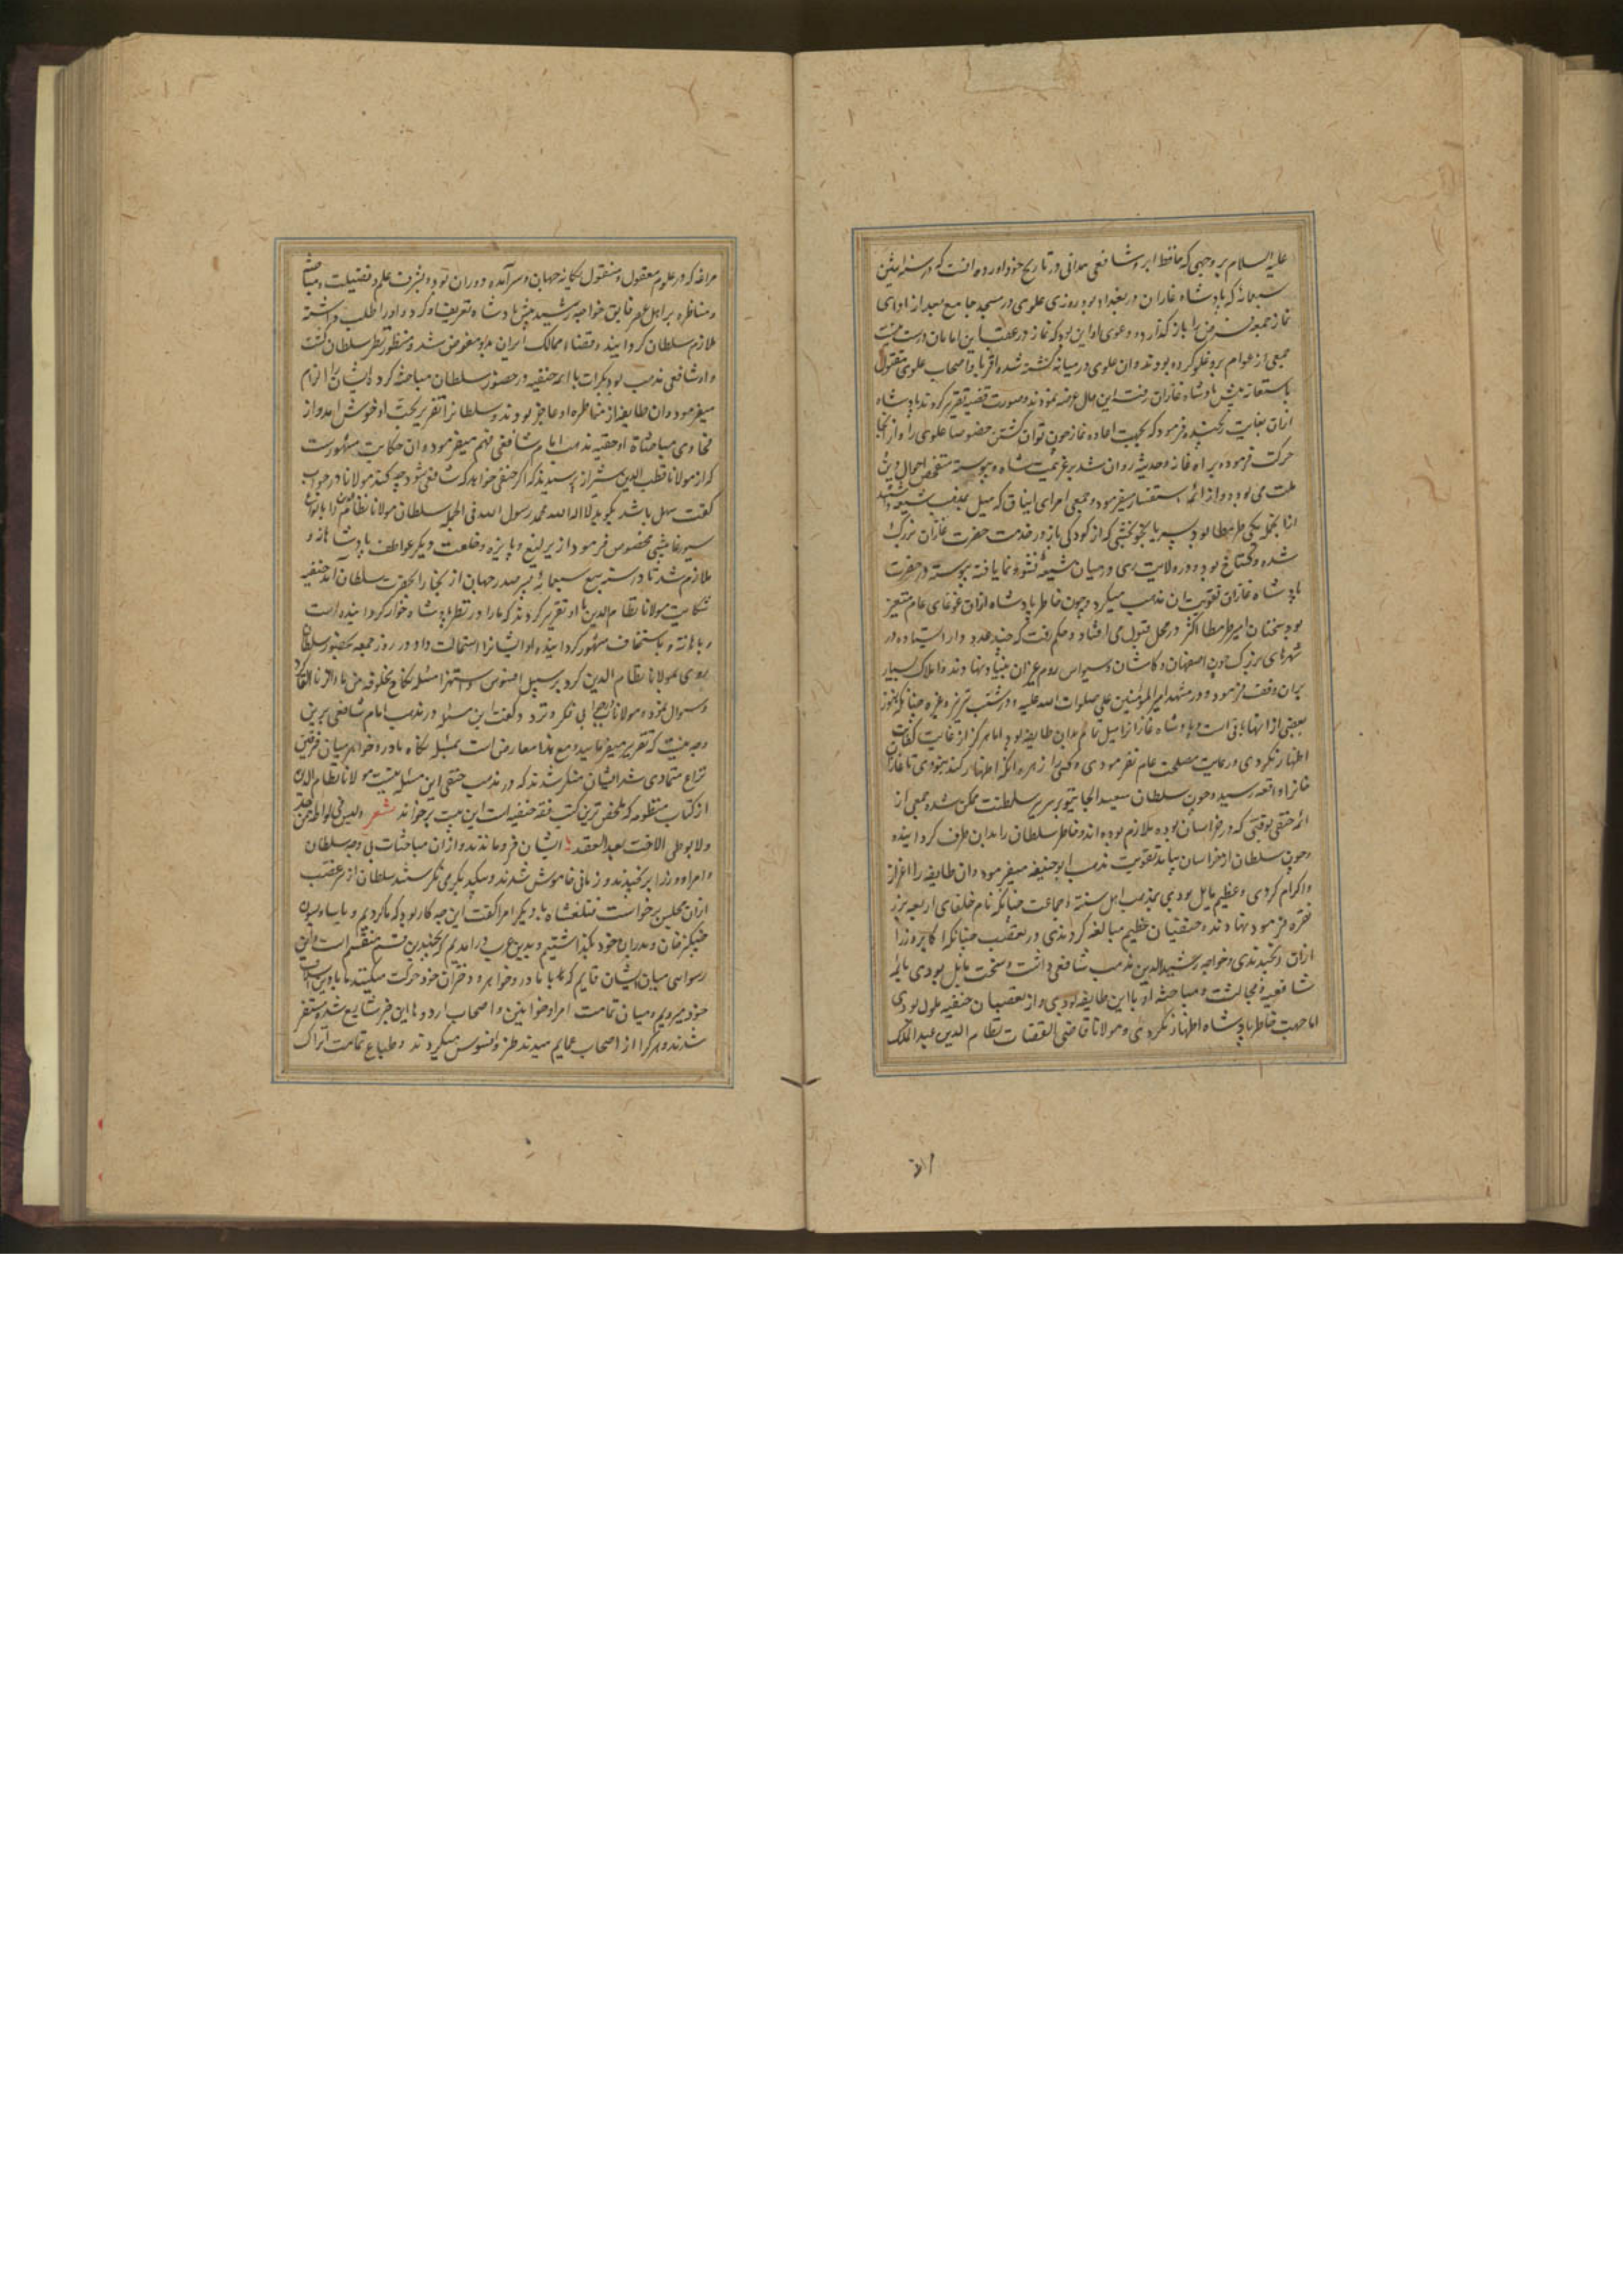 علیه السلام بر وجهی که حافظ ابرو شافعی همدانی در تاریخ خود آورده آنست که در سنه اثنین
سبعمائه که پادشاه غازان در بغداد بود روزی علوی در مسجد جامع بعد از ادای
نماز جمعه فرض را باز گذارد و دعوی او این بود که نماز در عقب این امامان درست نیست
جمعی از عوام برو غلو کرده بودند و ان علوی در میانه کشته شده اقربا و اصحاب علوی مقتول
باستغاثه پیش پادشاه غازان رفت این حال عرضه نمودند و صورت قضیه تقریر کردند پادشاه
ازان بغایت رنجیده فرمود که بجهت اعاده نماز چون توان کشتن خصوصا علوی را و از آنجا
حرکت فرموده براه عانه و حدیثه روان شد بر عزیمت شام و پیوسته متفحص احوال دین
ملت می بود و از ائمه استفسار میفرمود و جمعی امرای ایناق که میل بمذهب شیعه داشتند
از آنجمله یکی طرمطا بود پسر بایجو بخشی که از کودکی باز در خدمت حضرت غازان بزرگ
شده و گستاخ بود و در ولایت ری در میان شیعه نشو و نما یافته پیوسته در حضرت
پادشاه غازان تقویت ان مذهب میکرد و چون خاطر پادشاه ازان غوغای عام متغیر
بود سخنان امیر طرمطا اکثر در محل قبول می افتاد و حکم رفت که چند عدد دار السیاده در
شهرهای بزرگ چون اصفهان و کاشان و سیواس روم عزان بنیاد نهادند و املاک بسیار
بران وقف فرمود و در مشهد امیر المؤمنین علی صلوات الله علیه و در شنب تبریز و غیره چنانکه هنوز
بعضی از انها باقی است و پادشاه غازانرا میل تمام بدان طایفه بود اما هرگز از غایت کفایت
اظهار نکردی و رعایت مصلحت عام نفرمودی و کسی را زهره انکه اظهار کند نبودی تا غازان
خانرا واقعه رسید و چون سلطان سعید الجایتو بر سریر سلطنت ممکن شده جمعی از
ائمه حنفی بوقتی که در خراسان بوده ملازم بوده اند و خاطر سلطان را بدان طرف گردانیده
و چون سلطان از خراسان بیامد تقویت مذهب ابو حنیفه میفرمود و ان طایفه را اعزاز
و اکرام کردی و عظیم مایل بودی بمذهب اهل سنة و جماعت چنانکه نام خلفای اربعه بر زر
نقره فرمود نهادند و حنفیان عظیم مبالغه کردندی در تعصب چنانکه اکابر وزرا
ازان رنجیدندی و خواجه رشید الدین مذهب شافعی داشت و سخت مایل بودی بائمه
شافعیه و مجالست و مباحثه او با این طایفه بودی و از تعصبات حنفیه ملول بودی
اما جهت خاطر پادشاه اظهار نکردی و مولانا قاضی القضات نظام الدین عبد الملک
مراغه که در علوم معقول و منقول یگانه جهان و سر آمده دوران بود و بشرف علم و فضیلت و مباحثه
و مناظره بر اهل عصر فایق خواجه رشید پیش پادشاه تعریف او کرد و او را طلب داشته
ملازم سلطان گردانیدند و قضاء ممالک ایران بدو مفوض شد و منظور نظر سلطان گشت
و او شافعی مذهب بود بکرات با ائمه حنفیه در حضور سلطان مباحثه کرد و ایشان را الزام
میفرمود و ان طایفه از مناظره او عاجز بودند و سلطانرا تقریر بحث او خوش امد و از
فحاوی مباحثات او حقیه مذهب امام شافعی فهم میفرمود و ان حکایت مشهورست
که از مولانا قطب الدین شیرازی پرسیدند که اگر حنفی خواهد که شافعی شود چه کند مولانا در جواب
گفت سهل باشد بگوید لا اله الا الله محمد رسول الله فی الجمله سلطان مولانا نظام الدین را بانواع
سیورغامیشی مخصوص فرمود از یرلیغ و پایزه و خلعت و دیگر عواطف پادشاهانه و
ملازم شد تا در سنه سبع سبعمائه پسر صدر جهان از بخارا بحضرت سلطان آمد حنفیه
شکایت مولانا نظام الدین با او تقریر کردند که ما را در نظر پادشاه خوار گردانیده است
و باهانة و باستخاف مشهور گردانیده او ایشانرا استمالت داد و در روز جمعه بحضور سلطان
روی بمولانا نظام الدین کرد بر سبیل افسوس و استهزا مسئله نکاح مخلوقه من ماء الزنا القا کرد
و سوال نمود و مولانا بی فکر و تردد گفت این مسئله در مذهب امام شافعی برین
وجه نیست که تقریر میفرمایید و مع هذا معارض است بمسئله نکاه مادر و خواهر میان فریقین
نزاع متمادی شد ایشان منکر شدند که در مذهب حنفی این مسئله نیست مولانا نظام الدین
از کتاب منظومه که ملخص ترین کتب فقه حنفیه است این بیت برخواند شعر و لیس فی لواطة من حد
و لا بوطی الاخت بعد العقد ایشان فروماندند و از ان مباحثات بی وجه سلطان
و امرا و وزرا برنجیدند و زمانی خاموش شدند و بیکدیگر می نگریستند سلطان از سر غضب
از ان مجلس برخاست قتلغشاه با دیگر امرا گفت این چه کار بود که ما کردیم و یاسا و یوسون
چنگیز خان و پدران خود بگذاشتیم و بدین عرب درامدیم که بچندین قسم منقسم است و این
رسوایی میان ایشان قایم که با مادر و خواهر و دختران خود حرکت میکنند ما با دین اسلاف
خود میرویم و میان تمامت امرا و خواتین و اصحاب اردوها این خبر شایع شد و متنفر
شدند و هر کرا از اصحاب عمایم میدیدند طنز و افسوس میکردند و طباع تمامت اتراک